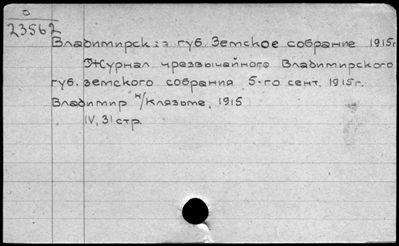 0
23562
Владимирская губ. Земское собрание 1915г
Журнал чрезвычайного Владимирского
губ. земского собрания 5-го сент. 1915г.
Владимир н/Клязьме, 1915
IV, 31 стр.